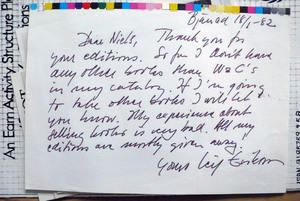 Bjärred 18/1-82
Dear Niels, Thank you for
your editions. So far I don't have
any other books than W&C's
in my catalog. If I'm going
to take other books I will let
you know. My experience about
selling books is very bad. All my
editions are mostly given away.
Yours Leif Eriksson
An Earn Activity, Structure Pl